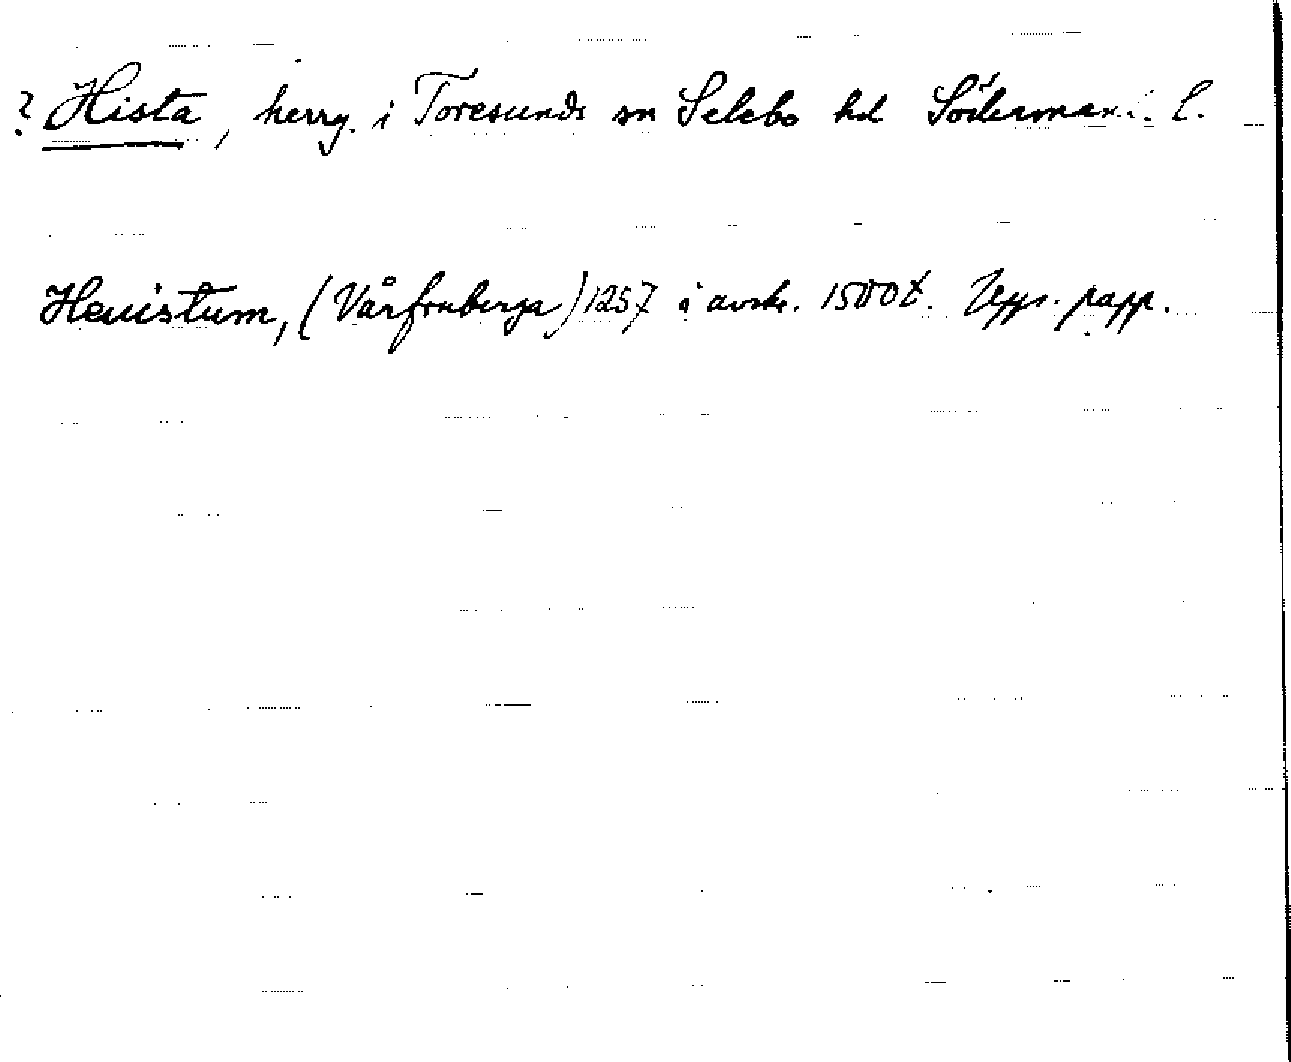 ? Hista, herrg. i Toresunds sn Selebo hd Södermanl. l.
Heuistum, (Vårfruberga) 1257 i avskr. 1500t. Upps. papp.